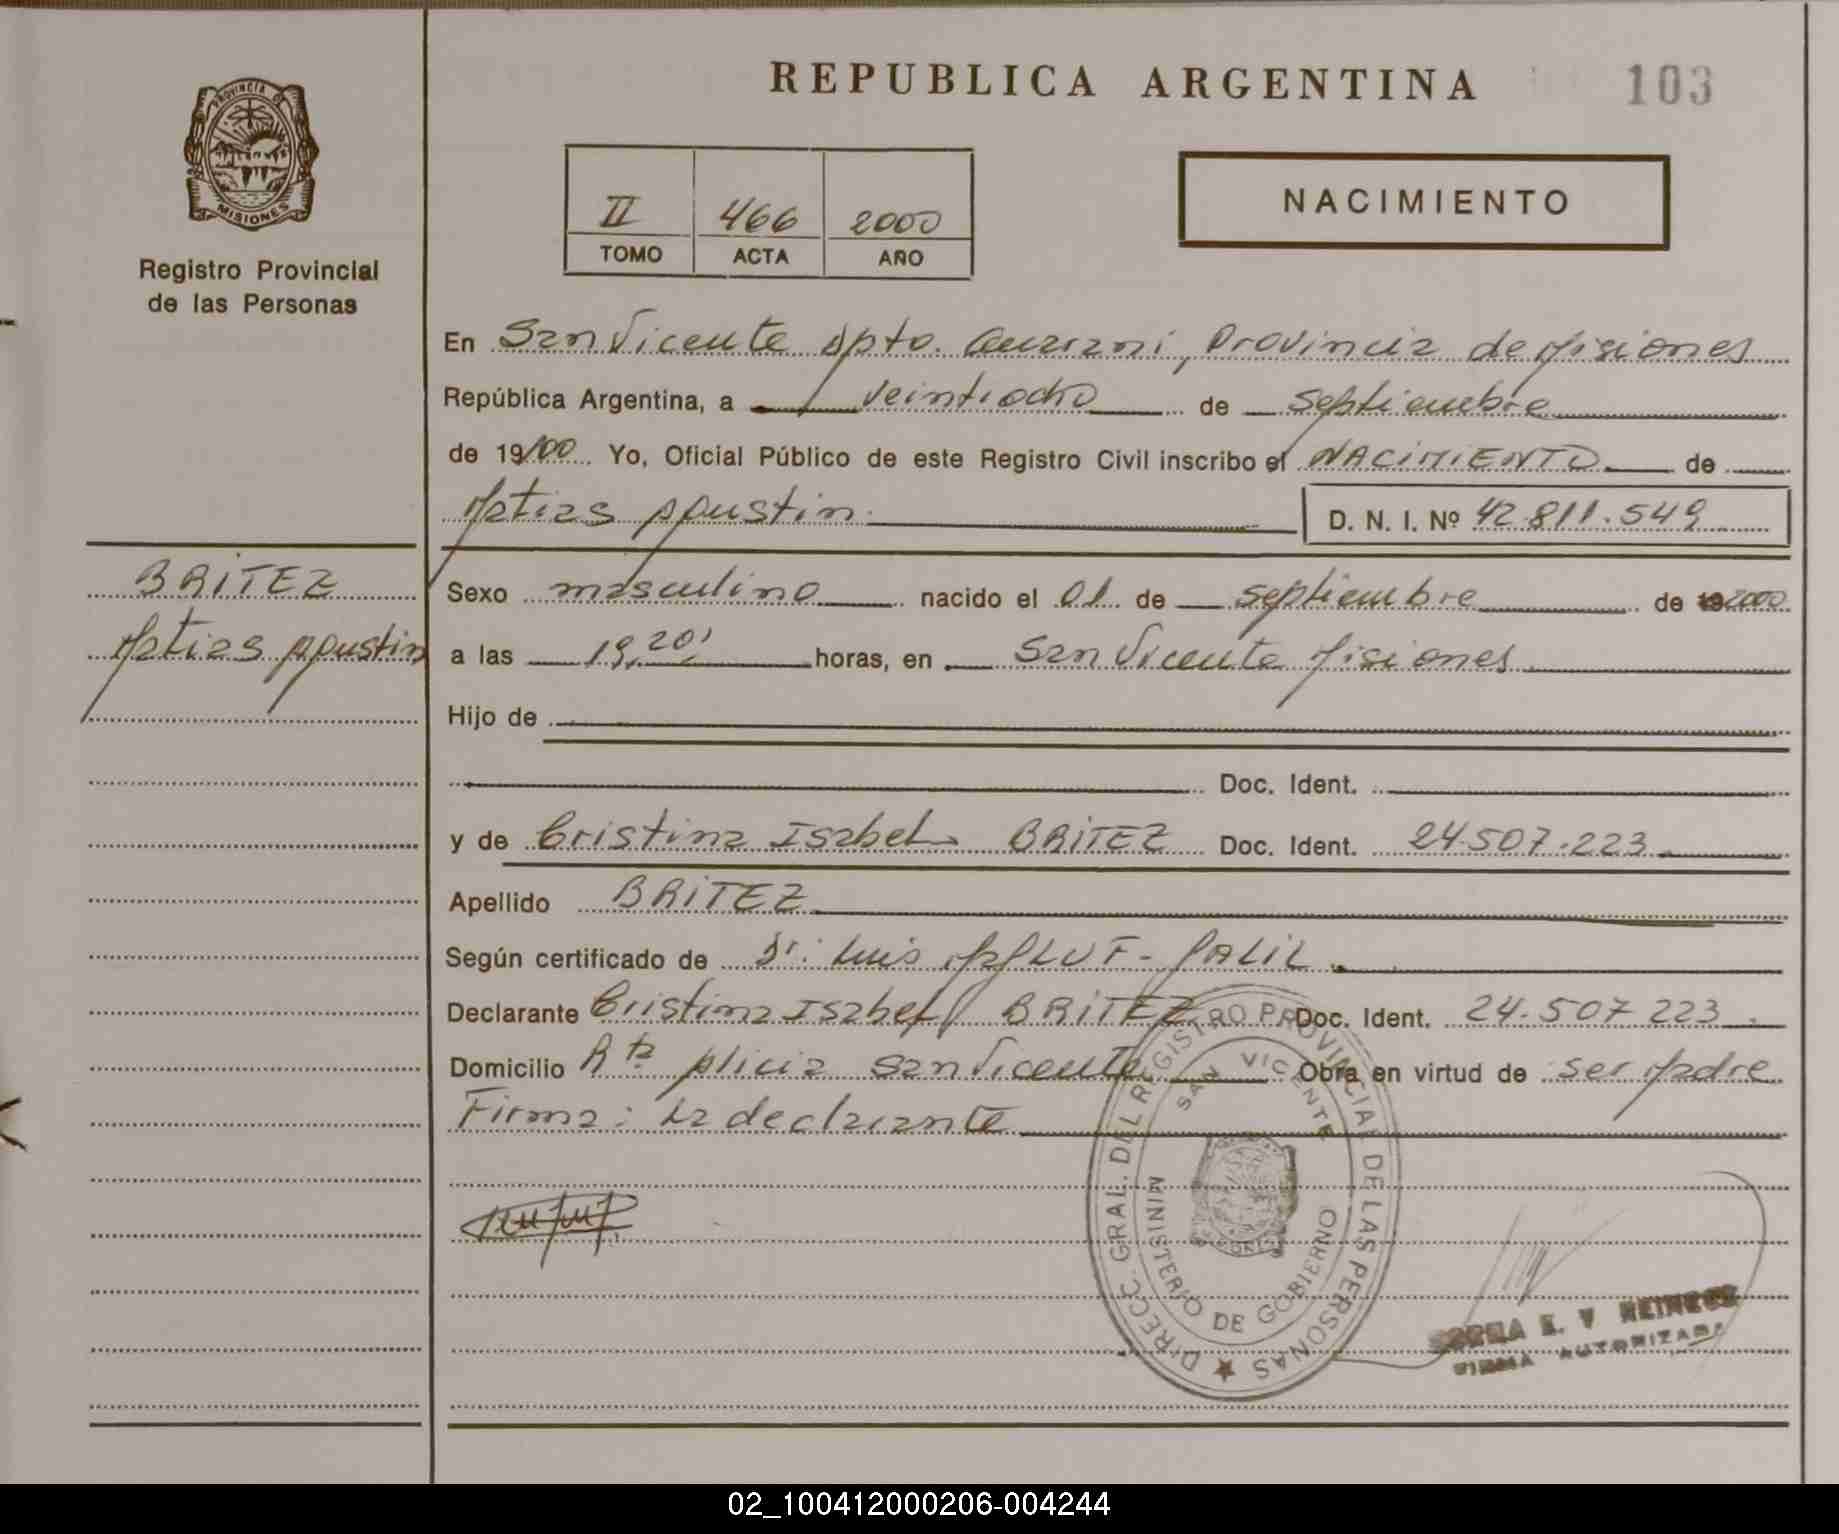 REPUBLICA ARGENTINA
103
PROVINCIA DE
MISIONES
Registro Provincial
de las Personas
II 466 2000
TOMO ACTA AÑO
NACIMIENTO
En San Vicente Dpto. Guaraní, Provincia de Misiones
República Argentina, a veintiocho de septiembre
de 19/00 Yo, Oficial Público de este Registro Civil inscribo el NACIMIENTO de
Matias Agustin D. N. I. Nº 42.811.549
BRITEZ
Matias Agustin
Sexo masculino nacido el 01 de septiembre de 19 2000
a las 19,20' horas, en San Vicente Misiones
Hijo de
Doc. Ident.
y de Cristina Isabel BRITEZ Doc. Ident. 24.507.223
Apellido BRITEZ
Según certificado de Dr. Luis
Declarante Cristina Isabel BRITEZ Doc. Ident. 24.507.223
Domicilio San Vicente Obra en virtud de ser Madre
Firma: La declarante
DIRECC. GRAL. DEL REGISTRO PROVINCIAL DE LAS PERSONAS
SAN VICENTE
MINISTERIO DE GOBIERNO
E. V
FIRMA AUTORIZADA
02_100412000206-004244